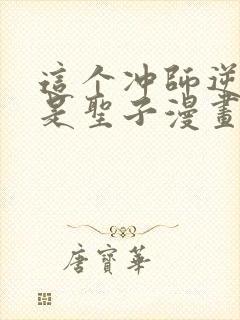 這个冲師逆
是聖子漫畫
唐寶華